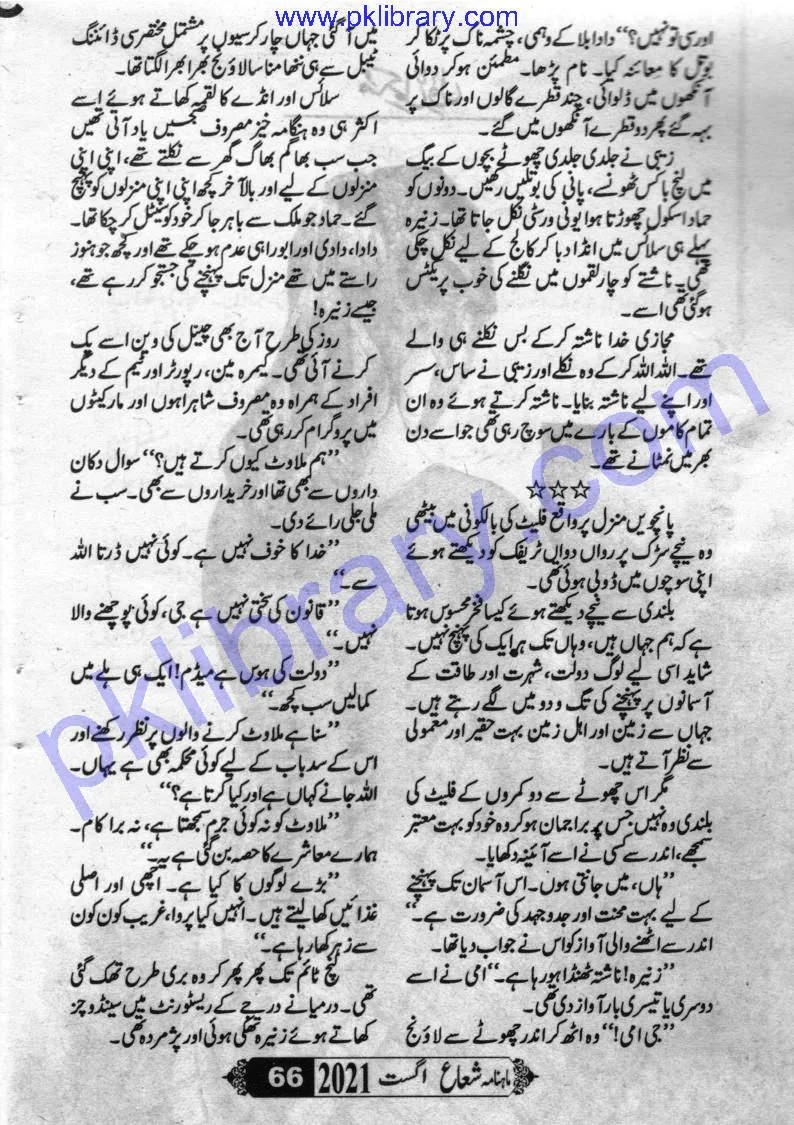 www.pklibrary.com
اور سی تو نہیں؟“ دادا بلا کے وہمی، چشمہ ناک پر ٹکا کر
بوتل کا معائنہ کیا۔ نام پڑھا۔ مطمئن ہو کر دوائی
آنکھوں میں ڈلوائی، چند قطرے گالوں اور ناک پر
بہہ گئے پھر دو قطرے آنکھوں میں گئے۔
زیبی نے جلدی جلدی چھوٹے بچوں کے بیگ
میں لنچ باکس ٹھونسے، پانی کی بوتلیں رکھیں۔ دونوں کو
حماد اسکول چھوڑتا ہوا یونی ورسٹی نکل جاتا تھا۔ زنیرہ
پہلے ہی سلائس میں انڈا دبا کر کالج کے لیے نکل چکی
تھی۔ ناشتے کو چار لقموں میں نگلنے کی خوب پریکٹس
ہو گئی تھی اسے۔
مجازی خدا ناشتہ کر کے بس نکلنے ہی والے
تھے۔ اللہ اللہ کر کے وہ نکلے اور زیبی نے ساس، سسر
اور اپنے لیے ناشتہ بنایا۔ ناشتہ کرتے ہوئے وہ ان
تمام کاموں کے بارے میں سوچ رہی تھی جو اسے دن
بھر میں نمٹانے تھے۔
☆☆☆
پانچویں منزل پر واقع فلیٹ کی بالکونی میں بیٹھی
وہ نیچے سڑک پر رواں دواں ٹریفک کو دیکھتے ہوئے
اپنی سوچوں میں ڈوبی ہوئی تھی۔
بلندی سے نیچے دیکھتے ہوئے کیسا فخر محسوس ہوتا
ہے کہ ہم جہاں ہیں، وہاں تک ہر ایک کی پہنچ نہیں۔
شاید اسی لیے لوگ دولت، شہرت اور طاقت کے
آسمانوں پر پہنچنے کی تگ و دو میں لگے رہتے ہیں۔
جہاں سے زمین اور اہل زمین بہت حقیر اور معمولی
سے نظر آتے ہیں۔
مگر اس چھوٹے سے دو کمروں کے فلیٹ کی
بلندی وہ نہیں جس پر براجمان ہو کر وہ خود کو بہت معتبر
سمجھے، اندر سے کسی نے اسے آئینہ دکھایا۔
”ہاں، میں جانتی ہوں۔ اس آسمان تک پہنچنے
کے لیے بہت محنت اور جدوجہد کی ضرورت ہے۔“
اندر سے اٹھنے والی آواز کو اس نے جواب دیا تھا۔
”زنیرہ! ناشتہ ٹھنڈا ہو رہا ہے۔“ امی نے اسے
دوسری یا تیسری بار آواز دی تھی۔
”جی امی!“ وہ اٹھ کر اندر چھوٹے سے لاؤنج
میں آ گئی جہاں چار کرسیوں پر مشتمل مختصر سی ڈائننگ
ٹیبل سے ہی ننھا منا سا لاؤنج بھرا بھرا لگتا تھا۔
سلائس اور انڈے کا لقمہ کھاتے ہوئے اسے
اکثر ہی وہ ہنگامہ خیز مصروف صبحیں یاد آتی تھیں
جب سب بھاگم بھاگ گھر سے نکلتے تھے، اپنی اپنی
منزلوں کے لیے اور بالآخر کچھ اپنی اپنی منزلوں کو پہنچ
گئے۔ حماد جو ملک سے باہر جا کر خود کو سیٹل کر چکا تھا۔
دادا، دادی اور ابو راہی عدم ہو چکے تھے اور کچھ جو ہنوز
راستے میں تھے منزل تک پہنچنے کی جستجو کر رہے تھے،
جیسے زنیرہ!
روز کی طرح آج بھی چینل کی وین اسے پک
کرنے آئی تھی۔ کیمرہ مین، رپورٹر اور ٹیم کے دیگر
افراد کے ہمراہ وہ مصروف شاہراہوں اور مارکیٹوں
میں پروگرام کر رہی تھی۔
”ہم ملاوٹ کیوں کرتے ہیں؟“ سوال دکان
داروں سے بھی تھا اور خریداروں سے بھی۔ سب نے
ملی جلی رائے دی۔
”خدا کا خوف نہیں ہے۔ کوئی نہیں ڈرتا اللہ
سے۔“
”قانون کی سختی نہیں ہے جی، کوئی پوچھنے والا
نہیں۔“
”دولت کی ہوس ہے میڈم! ایک ہی ہلے میں
کما لیں سب کچھ۔“
”سنا ہے ملاوٹ کرنے والوں پر نظر رکھنے اور
اس کے سدباب کے لیے کوئی محکمہ بھی ہے یہاں۔
اللہ جانے کہاں ہے اور کیا کرتا ہے؟“
”ملاوٹ کو نہ کوئی جرم سمجھتا ہے، نہ برا کام۔
ہمارے معاشرے کا حصہ بن گئی ہے یہ۔“
”بڑے لوگوں کا کیا ہے۔ اچھی اور اصلی
غذائیں کھا لیتے ہیں۔ انہیں کیا پروا، غریب کون کون
سے زہر کھا رہا ہے۔“
لنچ ٹائم تک پھر پھر کر وہ بری طرح تھک گئی
تھی۔ درمیانے درجے کے ریسٹورنٹ میں سینڈوچز
کھاتے ہوئے زنیرہ تھکی ہوئی اور پژمردہ تھی۔
pklibrary.com
ماہنامہ شعاع اگست 2021 66